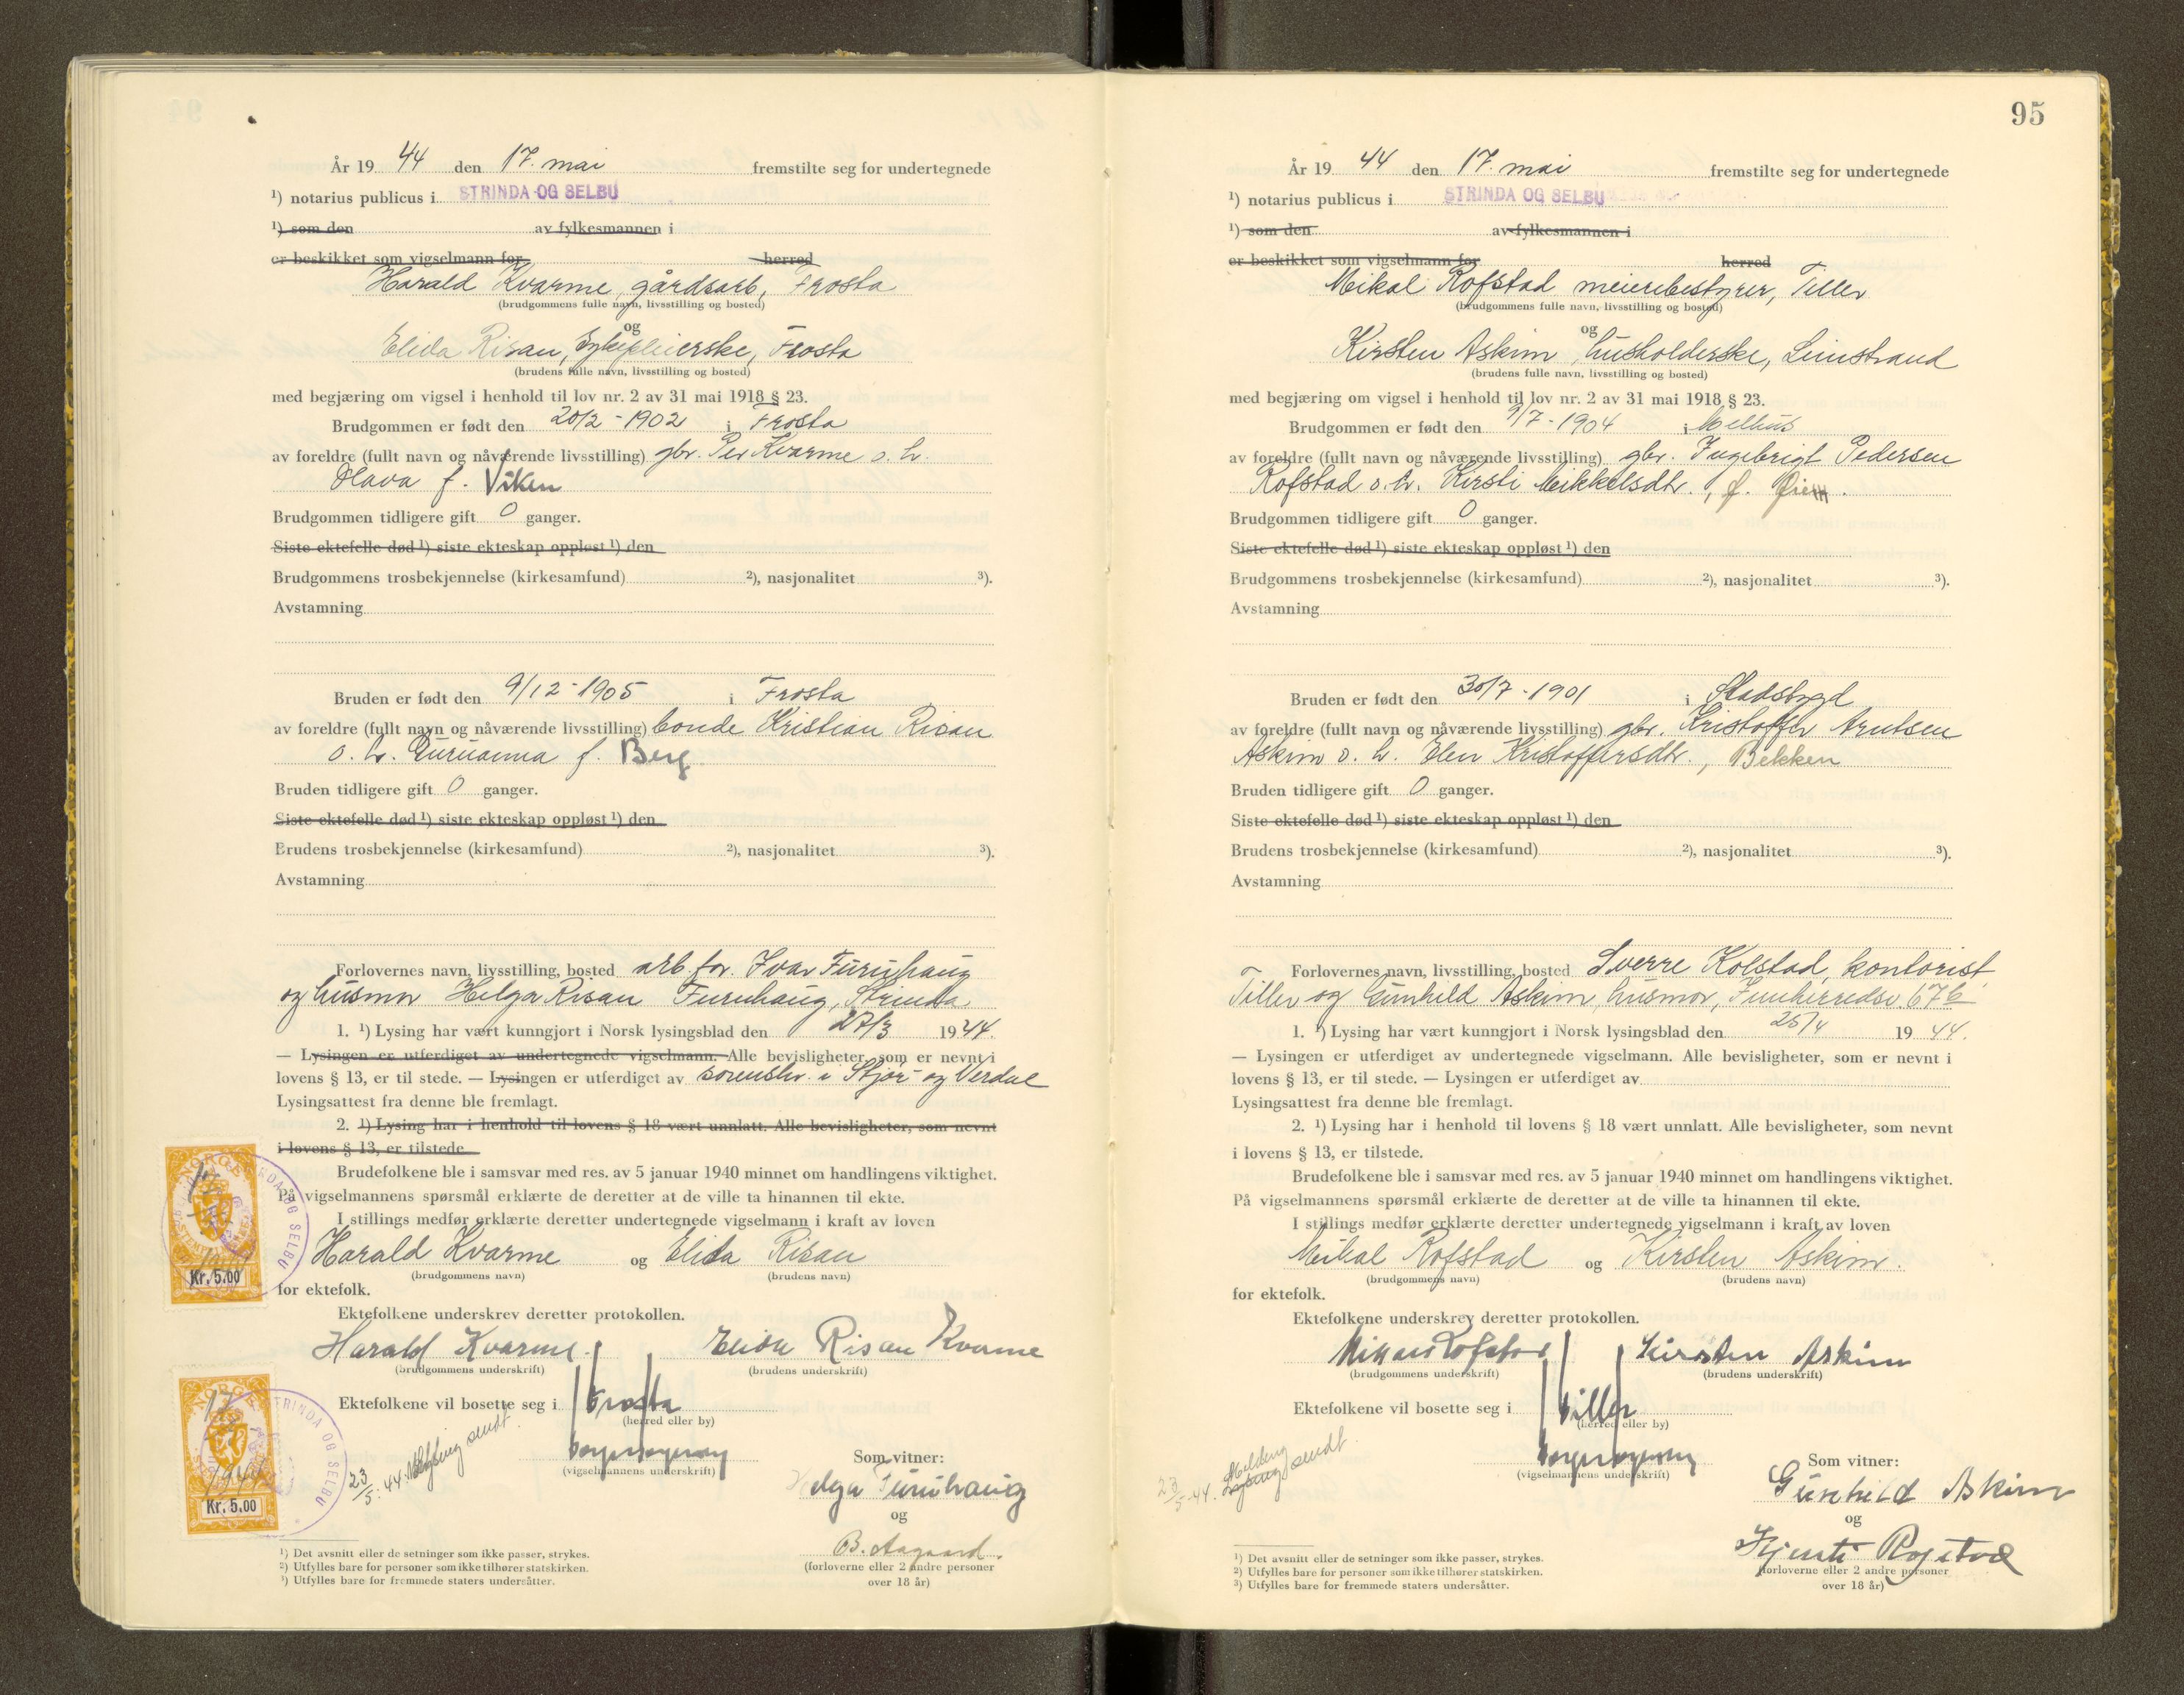 År 19 44 den 17. mai fremstilte seg for undertegnede
¹) notarius publicus i STRINDA OG SELBU
¹) som den av fylkesmannen i
er beskikket som vigselmann for herred
Harald Kvarme, gårdsarb, Frosta
(brudgommens fulle navn, livsstilling og bosted)
og
Elida Risan, Sykepleierske, Frosta
(brudens fulle navn, livsstilling og bosted)
med begjæring om vigsel i henhold til lov nr. 2 av 31 mai 1918 § 23.
Brudgommen er født den 20/2 - 1902 i Frosta
av foreldre (fullt navn og nåværende livsstilling) gbr. Per Kvarme o. h.
Olava f. Viken
Brudgommen tidligere gift 0 ganger.
Siste ektefelle død ¹) siste ekteskap oppløst ¹) den
Brudgommens trosbekjennelse (kirkesamfund) ²), nasjonalitet ³).
Avstamning
Bruden er født den 9/12 - 1905 i Frosta
av foreldre (fullt navn og nåværende livsstilling) bonde Kristian Risan
o. h. Guruanna f. Berg
Bruden tidligere gift 0 ganger.
Siste ektefelle død ¹) siste ekteskap oppløst ¹) den
Brudens trosbekjennelse (kirkesamfund) ²), nasjonalitet ³).
Avstamning
Forlovernes navn, livsstilling, bosted arb.for. Ivar Furuhaug
og husmor Helga Risan Furuhaug, Strinda.
1. ¹) Lysing har vært kunngjort i Norsk lysingsblad den 27/3 19 44.
— Lysingen er utferdiget av undertegnede vigselmann. Alle bevisligheter, som er nevnt i
lovens § 13, er til stede. — Lysingen er utferdiget av sorenskr. i Stjør- og Verdal
Lysingsattest fra denne ble fremlagt.
2. ¹) Lysing har i henhold til lovens § 18 vært unnlatt. Alle bevisligheter, som nevnt
i lovens § 13, er tilstede
Brudefolkene ble i samsvar med res. av 5 januar 1940 minnet om handlingens viktighet.
På vigselmannens spørsmål erklærte de deretter at de ville ta hinannen til ekte.
I stillings medfør erklærte deretter undertegnede vigselmann i kraft av loven
Harald Kvarme og Elida Risan
(brudgommens navn) (brudens navn)
for ektefolk.
Ektefolkene underskrev deretter protokollen.
Harald Kvarme Elida Risan Kvarme
(brudgommens underskrift) (brudens underskrift)
Ektefolkene vil bosette seg i Frosta
(herred eller by)
(vigselmannens underskrift)
23/5. 44. Melding sendt.
Som vitner:
Helga Furuhaug
og
B. Aagaard.
(forloverne eller 2 andre personer
over 18 år)
NORGE
Kr. 5.00
STRINDA OG SELBU
NORGE
17
1944
Kr. 5.00
STRINDA OG SELBU
¹) Det avsnitt eller de setninger som ikke passer, strykes.
²) Utfylles bare for personer som ikke tilhører statskirken.
³) Utfylles bare for fremmede staters undersåtter.
95
År 19 44 den 17. mai fremstilte seg for undertegnede
¹) notarius publicus i STRINDA OG SELBU
¹) som den av fylkesmannen i
er beskikket som vigselmann for herred
Mikal Rofstad meieribestyrer, Tiller
(brudgommens fulle navn, livsstilling og bosted)
og
Kirsten Askim, husholderske, Leinstrand
(brudens fulle navn, livsstilling og bosted)
med begjæring om vigsel i henhold til lov nr. 2 av 31 mai 1918 § 23.
Brudgommen er født den 9/7 - 1904 i Melhus
av foreldre (fullt navn og nåværende livsstilling) gbr. Ingebrigt Pedersen
Rofstad o. h. Kirsti Mikkelsdtr., f. Øien.
Brudgommen tidligere gift 0 ganger.
Siste ektefelle død ¹) siste ekteskap oppløst ¹) den
Brudgommens trosbekjennelse (kirkesamfund) ²), nasjonalitet ³).
Avstamning
Bruden er født den 30/7 - 1901 i Stadsbygd
av foreldre (fullt navn og nåværende livsstilling) gbr. Kristoffer Arntsen
Askim o. h. Elen Kristoffersdtr., Bekken
Bruden tidligere gift 0 ganger.
Siste ektefelle død ¹) siste ekteskap oppløst ¹) den
Brudens trosbekjennelse (kirkesamfund) ²), nasjonalitet ³).
Avstamning
Forlovernes navn, livsstilling, bosted Sverre Kolstad, kontorist
Tiller og Gunhild Askim, husmor, Innherredsv. 67b
1. ¹) Lysing har vært kunngjort i Norsk lysingsblad den 25/4 19 44.
— Lysingen er utferdiget av undertegnede vigselmann. Alle bevisligheter, som er nevnt i
lovens § 13, er til stede. — Lysingen er utferdiget av
Lysingsattest fra denne ble fremlagt.
2. ¹) Lysing har i henhold til lovens § 18 vært unnlatt. Alle bevisligheter, som nevnt
i lovens § 13, er tilstede.
Brudefolkene ble i samsvar med res. av 5 januar 1940 minnet om handlingens viktighet.
På vigselmannens spørsmål erklærte de deretter at de ville ta hinannen til ekte.
I stillings medfør erklærte deretter undertegnede vigselmann i kraft av loven
Mikal Rofstad og Kirsten Askim.
(brudgommens navn) (brudens navn)
for ektefolk.
Ektefolkene underskrev deretter protokollen.
Mikal Rofstad Kirsten Askim
(brudgommens underskrift) (brudens underskrift)
Ektefolkene vil bosette seg i Tiller
(herred eller by)
(vigselmannens underskrift)
23/5. 44. Melding sendt.
Som vitner:
Gunhild Askim
og
Rofstad
(forloverne eller 2 andre personer
over 18 år)
¹) Det avsnitt eller de setninger som ikke passer, strykes.
²) Utfylles bare for personer som ikke tilhører statskirken.
³) Utfylles bare for fremmede staters undersåtter.